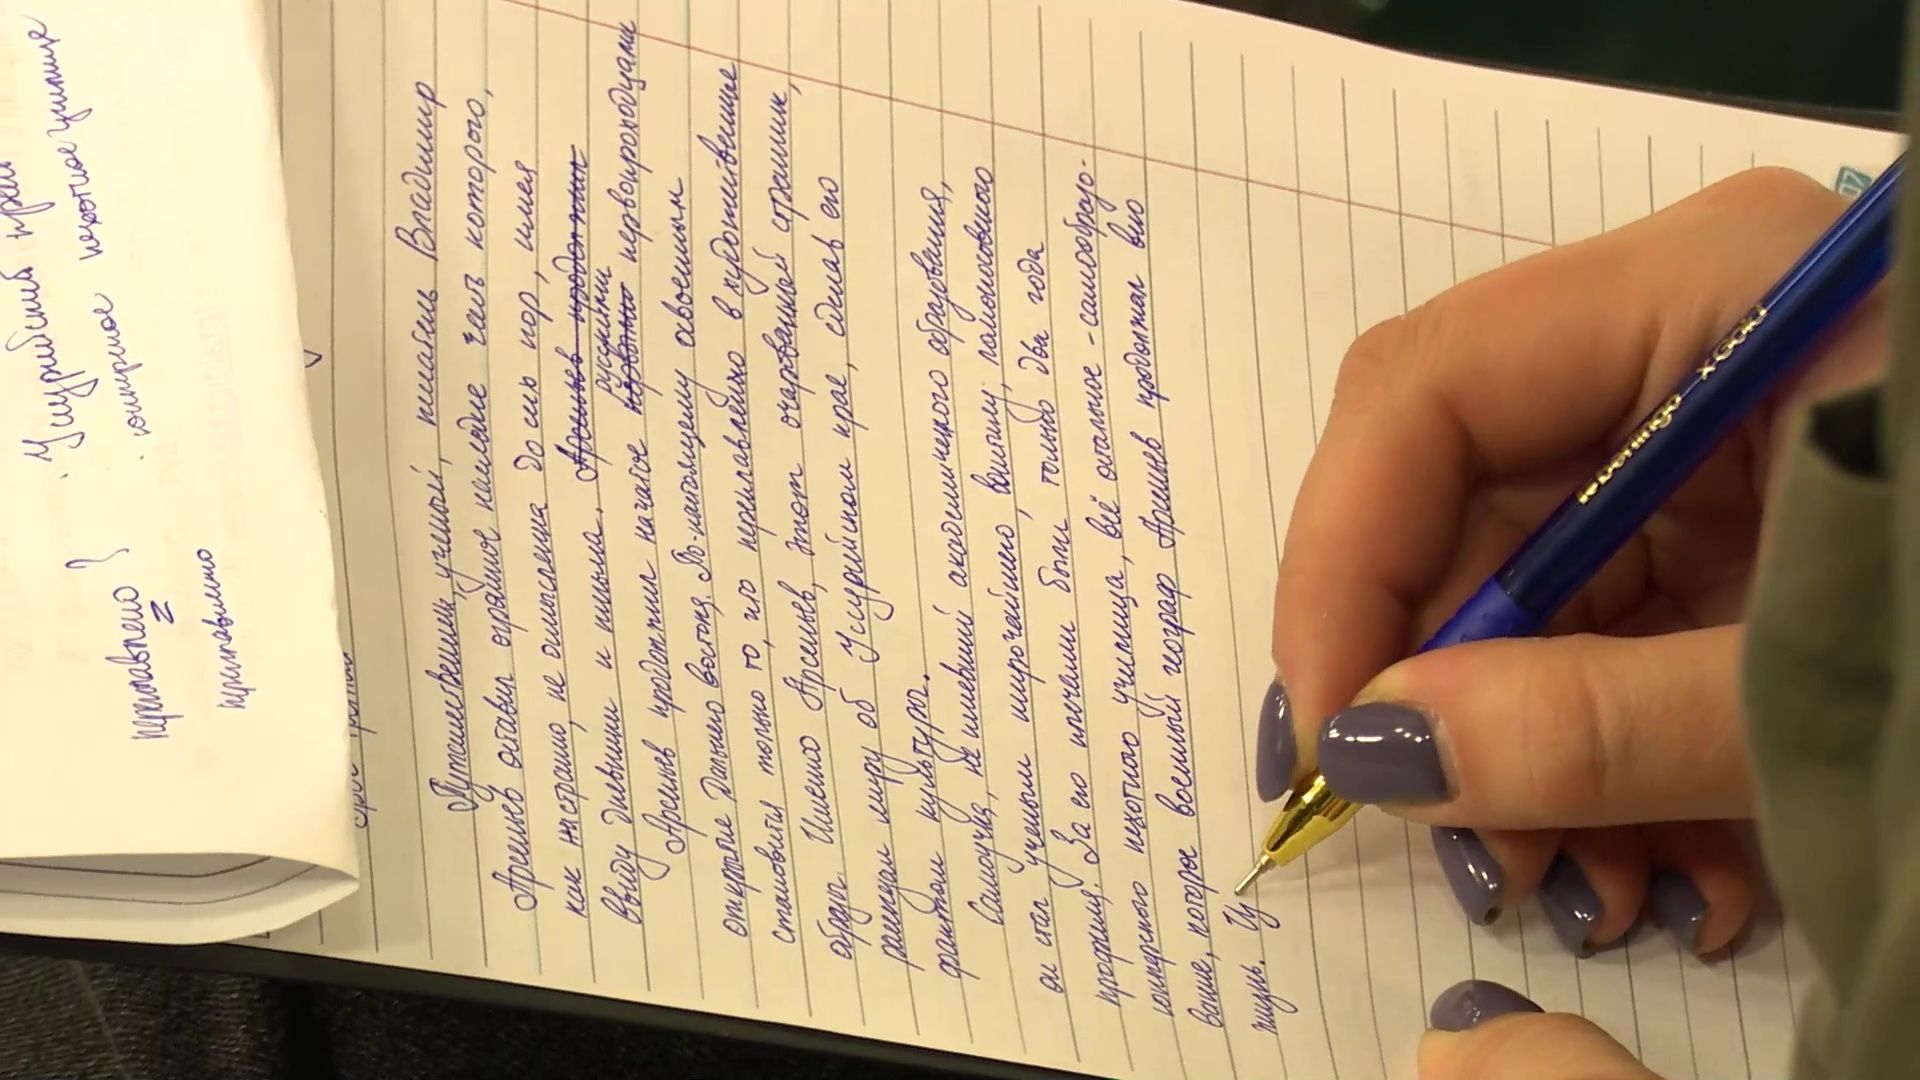 Уссурийский край
юнкерское пехотное училище
переплавлено }
приплавлено
Путешественник, ученый, писатель Владимир
Арсеньев оставил огромное наследие, часть которого,
как ни странно, не описана до сих пор, имея
ввиду дневники и письма. Арсеньев продолжил
русскими
Арсеньев продолжил начатое первопроходцами
открытие Дальнего востока. По-настоящему освоенным
становится только то, что переплавлено в художественные
образы. Именно Арсеньев, этот очарованный странник,
рассказал миру об Уссурийском крае, сделав его
фактом культуры.
Самоучка, не имевший академического образования,
он стал ученым широчайшего, величину, полисового
профиля. За его плечами были только два года
юнкерского пехотного училища, всё остальное - самообразо-
вание, которое военный географ Арсеньев продолжал всю
жизнь. Чу
Berlingo xGold